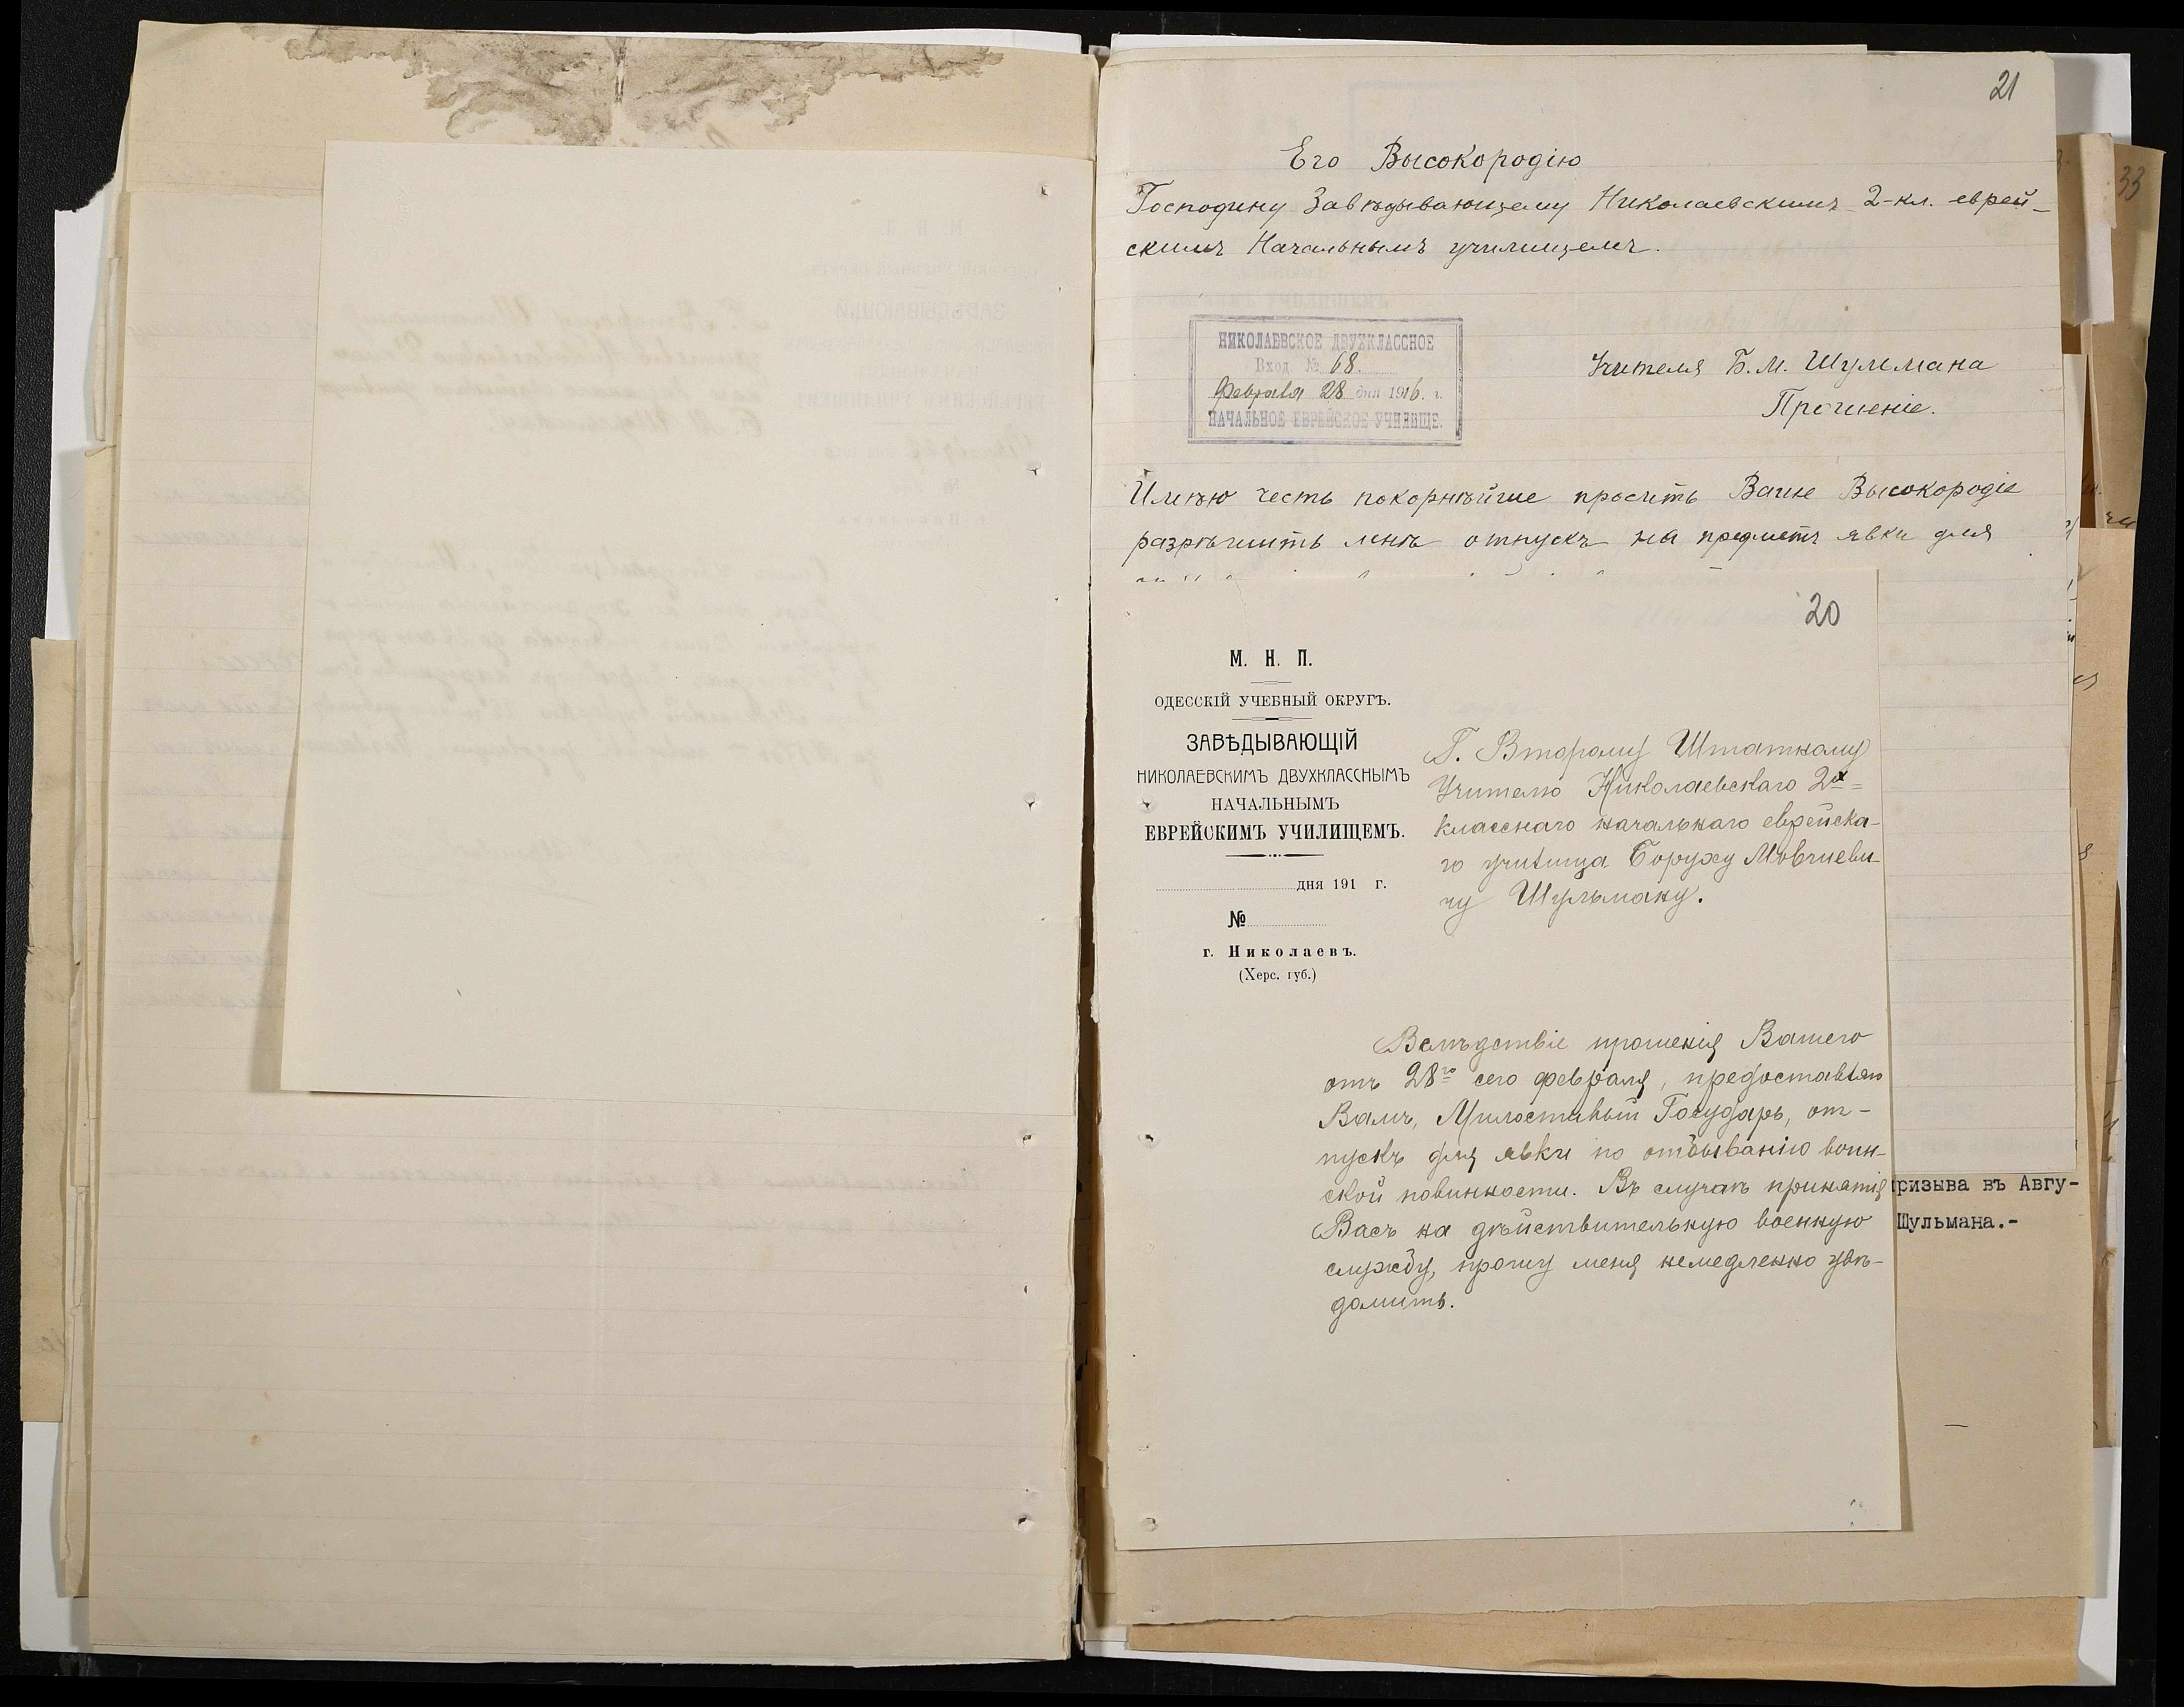 21
Его Высокородію
Господину Завѣдывающему Николаевскимъ 2-кл. еврей-
скимъ Начальнымъ училищемъ.
НИКОЛАЕВСКОЕ ДВУХКЛАССНОЕ
Вход. № 68.
Февраля 28 дня 1916. г.
НАЧАЛЬНОЕ ЕВРЕЙСКОЕ УЧИЛИЩЕ.
Учителя Б. М. Шульмана
Прошеніе.
Имѣю честь покорнѣйше просить Ваше Высокородіе
разрѣшить мнѣ отпускъ на предметъ явки для
20
М. Н. П.
ОДЕССКІЙ УЧЕБНЫЙ ОКРУГЪ.
ЗАВѢДЫВАЮЩІЙ
НИКОЛАЕВСКИМЪ ДВУХКЛАССНЫМЪ
НАЧАЛЬНЫМЪ
ЕВРЕЙСКИМЪ УЧИЛИЩЕМЪ.
дня 191 г.
№
г. Николаевъ.
(Херс. губ.)
Г. Второму Штатному
Учителю Николаевскаго 2х=
класснаго начальнаго еврейска-
го училища Боруху Мовшеви-
чу Шульману.
Вслѣдствіе прошенія Вашего
отъ 28го сего февраля, предоставляю
Вамъ, Милостивый Государь, от-
пускъ для явки по отбыванію воин-
ской повинности. Въ случаѣ принятія
Васъ на дѣйствительную военную
службу, прошу меня немедленно увѣ-
домить.
призыва въ Авгу-
Шульмана.-
33